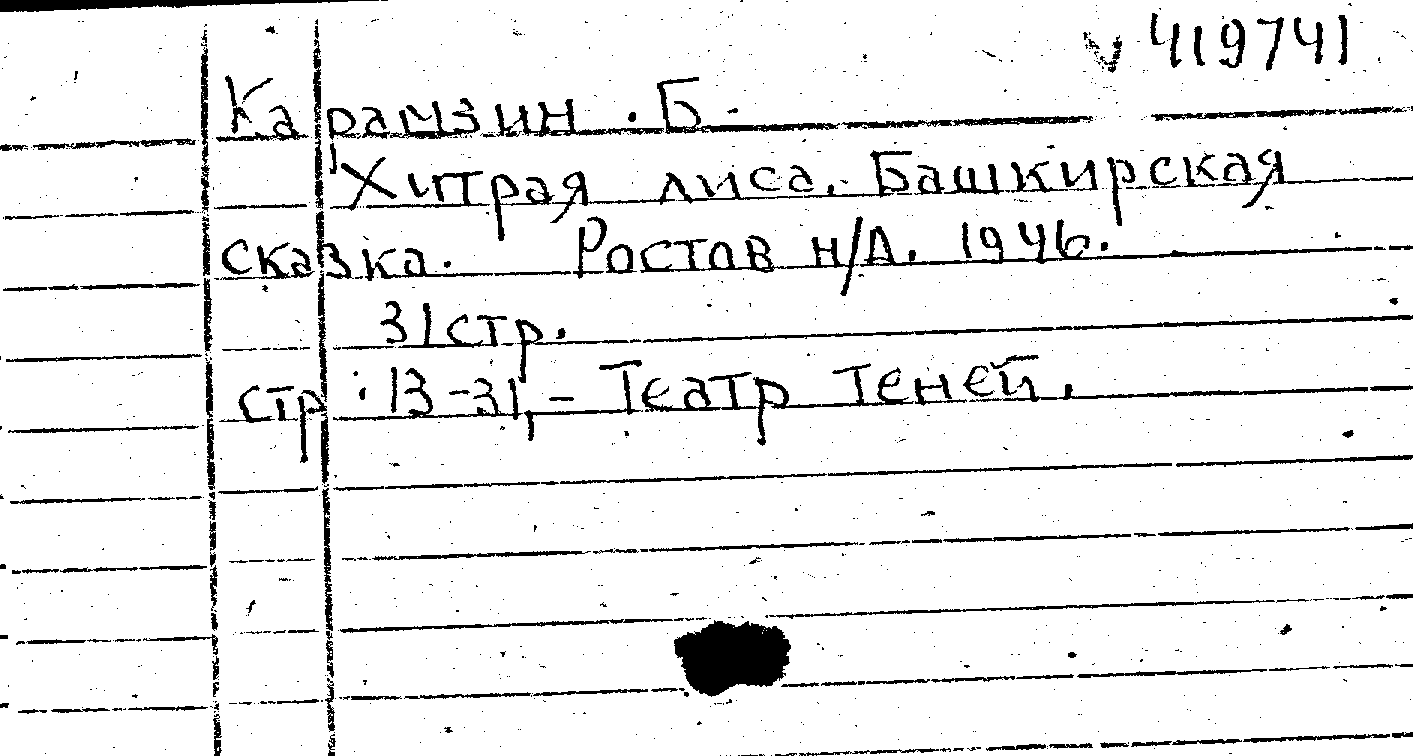 v 419741
Карамзин . Б.
Хитрая лиса. Башкирская
сказка. Ростов н/Д. 1946.
31 стр.
стр : 13-31, - Театр теней.